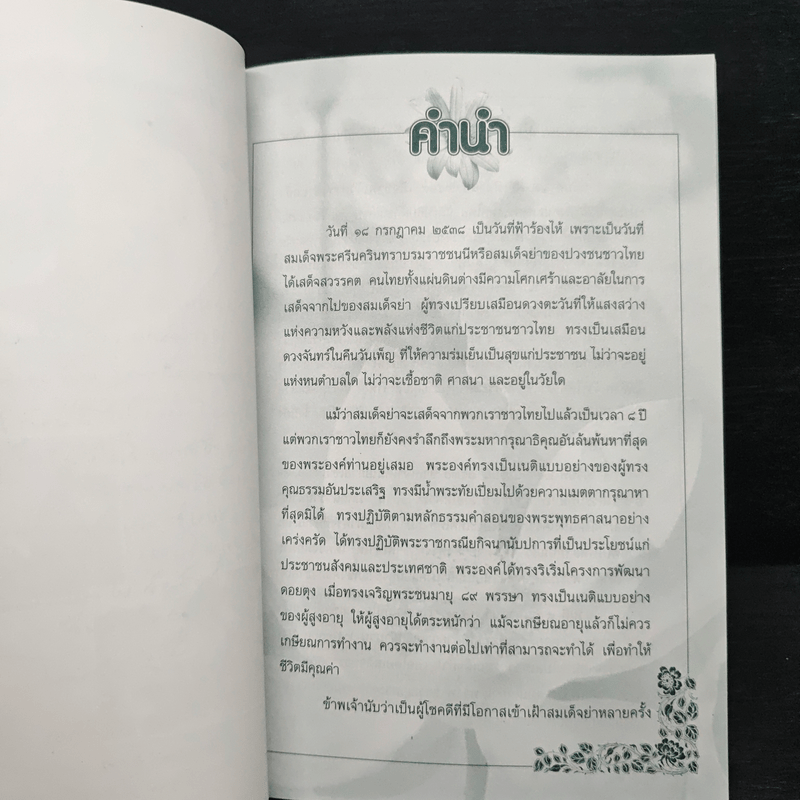 คำนำ
วันที่ ๑๘ กรกฎาคม ๒๕๓๘ เป็นวันที่ฟ้าร้องไห้ เพราะเป็นวันที่
สมเด็จพระศรีนครินทราบรมราชชนนีหรือสมเด็จย่าของปวงชนชาวไทย
ได้เสด็จสวรรคต คนไทยทั้งแผ่นดินต่างมีความโศกเศร้าและอาลัยในการ
เสด็จจากไปของสมเด็จย่า ผู้ทรงเปรียบเสมือนดวงตะวันที่ให้แสงสว่าง
แห่งความหวังและพลังแห่งชีวิตแก่ประชาชนชาวไทย ทรงเป็นเสมือน
ดวงจันทร์ในคืนวันเพ็ญ ที่ให้ความร่มเย็นเป็นสุขแก่ประชาชน ไม่ว่าจะอยู่
แห่งหนตำบลใด ไม่ว่าจะเชื้อชาติ ศาสนา และอยู่ในวัยใด
แม้ว่าสมเด็จย่าจะเสด็จจากพวกเราชาวไทยไปแล้วเป็นเวลา ๘ ปี
แต่พวกเราชาวไทยก็ยังคงรำลึกถึงพระมหากรุณาธิคุณอันล้นพ้นหาที่สุด
ของพระองค์ท่านอยู่เสมอ พระองค์ทรงเป็นเนติแบบอย่างของผู้ทรง
คุณธรรมอันประเสริฐ ทรงมีน้ำพระทัยเปี่ยมไปด้วยความเมตตากรุณาหา
ที่สุดมิได้ ทรงปฏิบัติตามหลักธรรมคำสอนของพระพุทธศาสนาอย่าง
เคร่งครัด ได้ทรงปฏิบัติพระราชกรณียกิจนานัปการที่เป็นประโยชน์แก่
ประชาชนสังคมและประเทศชาติ พระองค์ได้ทรงริเริ่มโครงการพัฒนา
ดอยตุง เมื่อทรงเจริญพระชนมายุ ๘๙ พรรษา ทรงเป็นเนติแบบอย่าง
ของผู้สูงอายุ ให้ผู้สูงอายุได้ตระหนักว่า แม้จะเกษียณอายุแล้วก็ไม่ควร
เกษียณการทำงาน ควรจะทำงานต่อไปเท่าที่สามารถจะทำได้ เพื่อทำให้
ชีวิตมีคุณค่า
ข้าพเจ้านับว่าเป็นผู้โชคดีที่มีโอกาสเข้าเฝ้าสมเด็จย่าหลายครั้ง